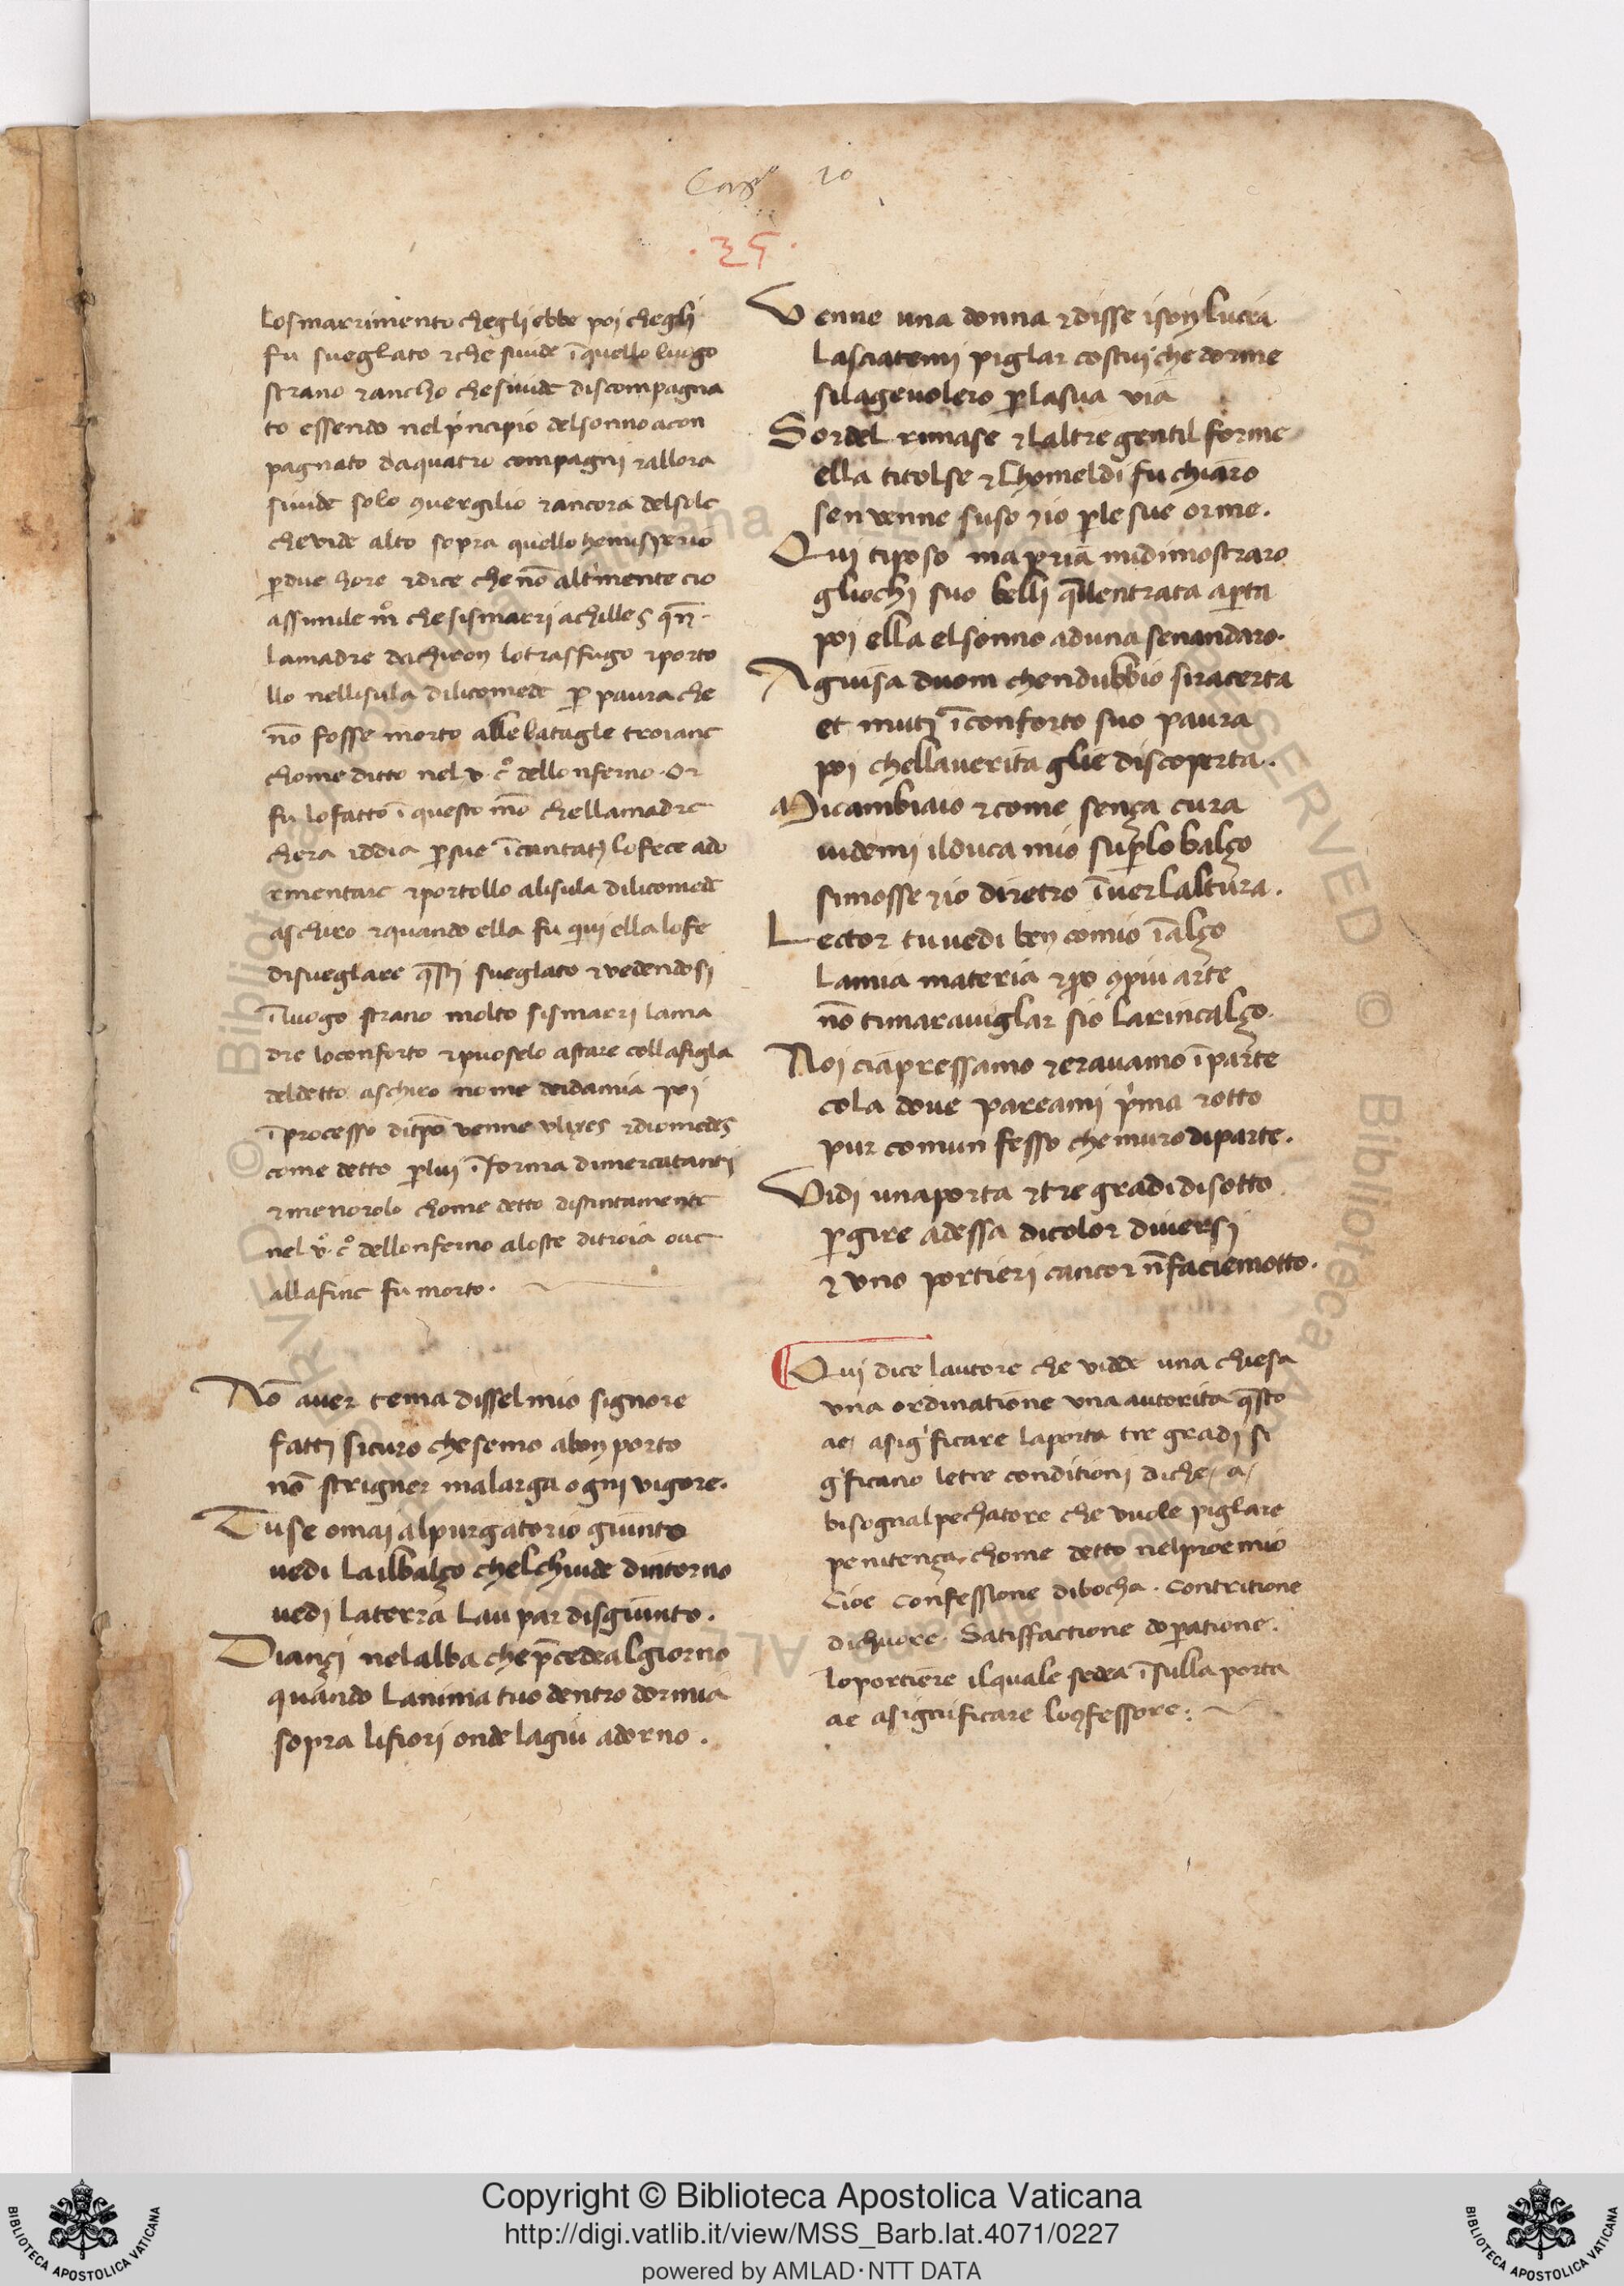 Cap° 10
.35.
losmarrimento chegli ebbe poi chegli
fu sueglato ⁊ che siuide ī quello luogo
strano ⁊ ancho che siuide discompagna
to essendo nel pͥncipio delsonno acon
pagnato daquatro compagni ⁊ allora
siuide solo ꝯuergilio ⁊ ancora delsole
cheuide alto sopra quello hemisperio
ꝑ due hore ⁊ dice che nō altͥmente cio
assimile che sismarri achilles qn̄
lamadre dachiron lotrasfugo ⁊ porto
llo nellisula dilicomede ꝑ paura che
nō fosse morto alle batagle troiane
chome ditto nel v. c° dellonferno. Or
fu lofatto ī questo mō chellamadre
chera iddia ꝑ sue īcantatȷ lofece ado
rmentare ⁊ portollo alisula dilicomede
aschiro ⁊ quando ella fu qui ella lofe
disueglare q̄sti sueglato ⁊ vedendosi
ī luogo strano molto sismarri lama
dre loconforto ⁊ puoselo astare collafigla
deldetto aschiro nome deidamia poi
ī processo ditp̄o venne vlixes ⁊ diomedes
come detto ꝑ lui ī forma dimercatanti
⁊ menorolo chome detto distintamente
nel v° c° dellonferno aloste ditroia oue
allafine fu morto.
Nō auer tema disselmio signore
fatti sicuro chesemo abon porto
nō strigner malarga ogni vigore.
Tuse omai alpurgatorio giunto
uedi lailbalço chelchiude dintorno
uedi laterra lau par disgiunto.
Diançi nelalba chep̄cedealgiorno
quando lanima tuo dentro dormia
sopra lifiori onde lagiu adorno.
Venne una donna ⁊ disse ison lucia
lasciatemi piglar costui che dorme
silageuolero ꝑ lasua via
Sordel rimase ⁊ laltre gentil forme
ella titolse ⁊ chomeldi fu chiaro
senvenne suso ⁊ io ꝑ le sue orme.
Qui tiposo ma pria midimostraro
gliochi suo belli q̄llentrata aꝑta
poi ella elsonno aduna senandaro.
Aguisa duom chendubbio siracerta
et muti īconforto suo paura
poi chellauerita glie discoperta.
Micambiaio ⁊ come sença cura
uidemi ilduca mio suꝑlo balço
simosse ⁊ io diretro īuerlaltura.
Lector tuuedi ben comio īalço
lamia materia ⁊ ꝑo ꝯpiu arte
nō timarauiglar sio larincalço.
Noi ciapressamo ⁊ erauamo īparte
cola doue pareami pͥma rotto
pur comun fesso chemuro diparte.
Vidi unaporta ⁊ tre gradi disotto
ꝑ gire adessa dicolor diuersi
⁊ vno portieri cancor n̄ faciemotto.
Qui dice lautore che vidde una chiesa
vna ordinatione vna autorita q̄sto
ae asigͥficare laporta tre gradi si
gͥficano letre conditioni diche a
bisognalpechatore che vuole piglare
penitença chome detto nelproemio
Cioe confessione dibocha. Contritione
dichuore. Satisfactione doꝑatione.
loportiere ilquale sedea īsulla porta
ae asignificare loꝯfessore.
Copyright © Biblioteca Apostolica Vaticana
http://digi.vatlib.it/view/MSS_Barb.lat.4071/0227
powered by AMLAD·NTT DATA
BIBLIOTECA APOSTOLICA VATICANA
BIBLIOTECA APOSTOLICA VATICANA